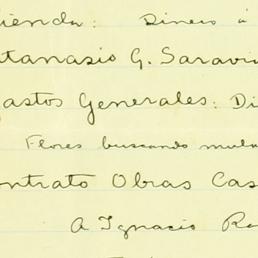 ienda: Dinero á
tanasio G. Saravi
astos Generales: Di
Flores buscando mula
ontrato Obras Cas
A Ignacio Ra